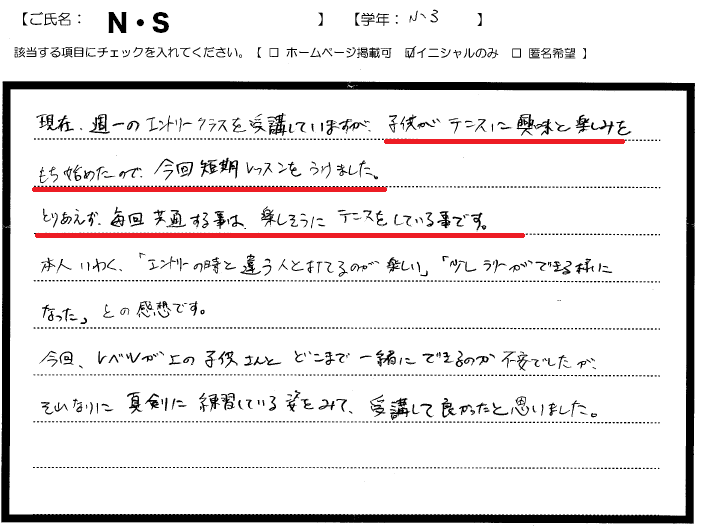 【ご氏名： N・S 】 【学年：小3 】
該当する項目にチェックを入れてください。【 □ ホームページ掲載可 ☑イニシャルのみ □ 匿名希望 】
現在、週一のエントリークラスを受講していますが、子供がテニスに興味と楽しみを
もち始めたので、今回短期レッスンをうけました。
とりあえず、毎回共通する事は、楽しそうにテニスをしている事です。
本人いわく、「エントリーの時と違う人と打てるのが楽しい」「少しラリーができる様に
なった」との感想です。
今回、レベルが上の子供さんとどこまで一緒にできるのか不安でしたが、
それなりに真剣に練習している姿をみて、受講して良かったと思いました。